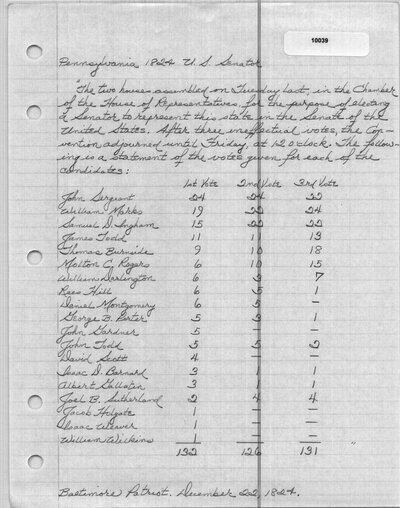 10039
Pennsylvania 1824 U.S. Senator
"The two houses assembled on Tuesday last, in the Chamber
of the House of Representatives, for the purpose of electing
a Senator to represent this state in the Senate of the
United States. After three ineffectual votes, the Con-
vention adjourned until Friday, at 12 o'clock. The follow-
ing is a statement of the votes given for each of the
candidates:
1st Vote 2nd Vote 3rd Vote
John Sergeant 24 24 22
William Marks 19 22 24
Samuel D. Ingham 15 22 22
James Todd 11 11 13
Thomas Burnside 9 10 18
Molton C. Rogers 6 10 15
William Darlington 6 3 7
Rees Hill 6 5 1
Daniel Montgomery 6 5 –
George B. Porter 5 3 1
John Gardner 5 – –
John Todd 5 5 2
David Scott 4 – –
Isaac D. Barnard 3 1 1
Albert Gallatin 3 1 1
Joel B. Sutherland 2 4 4
Jacob Holgate 1 – –
Isaac Weaver 1 – –
William Wilkins 1 – – "
132 126 131
Baltimore Patriot. December 22, 1824.